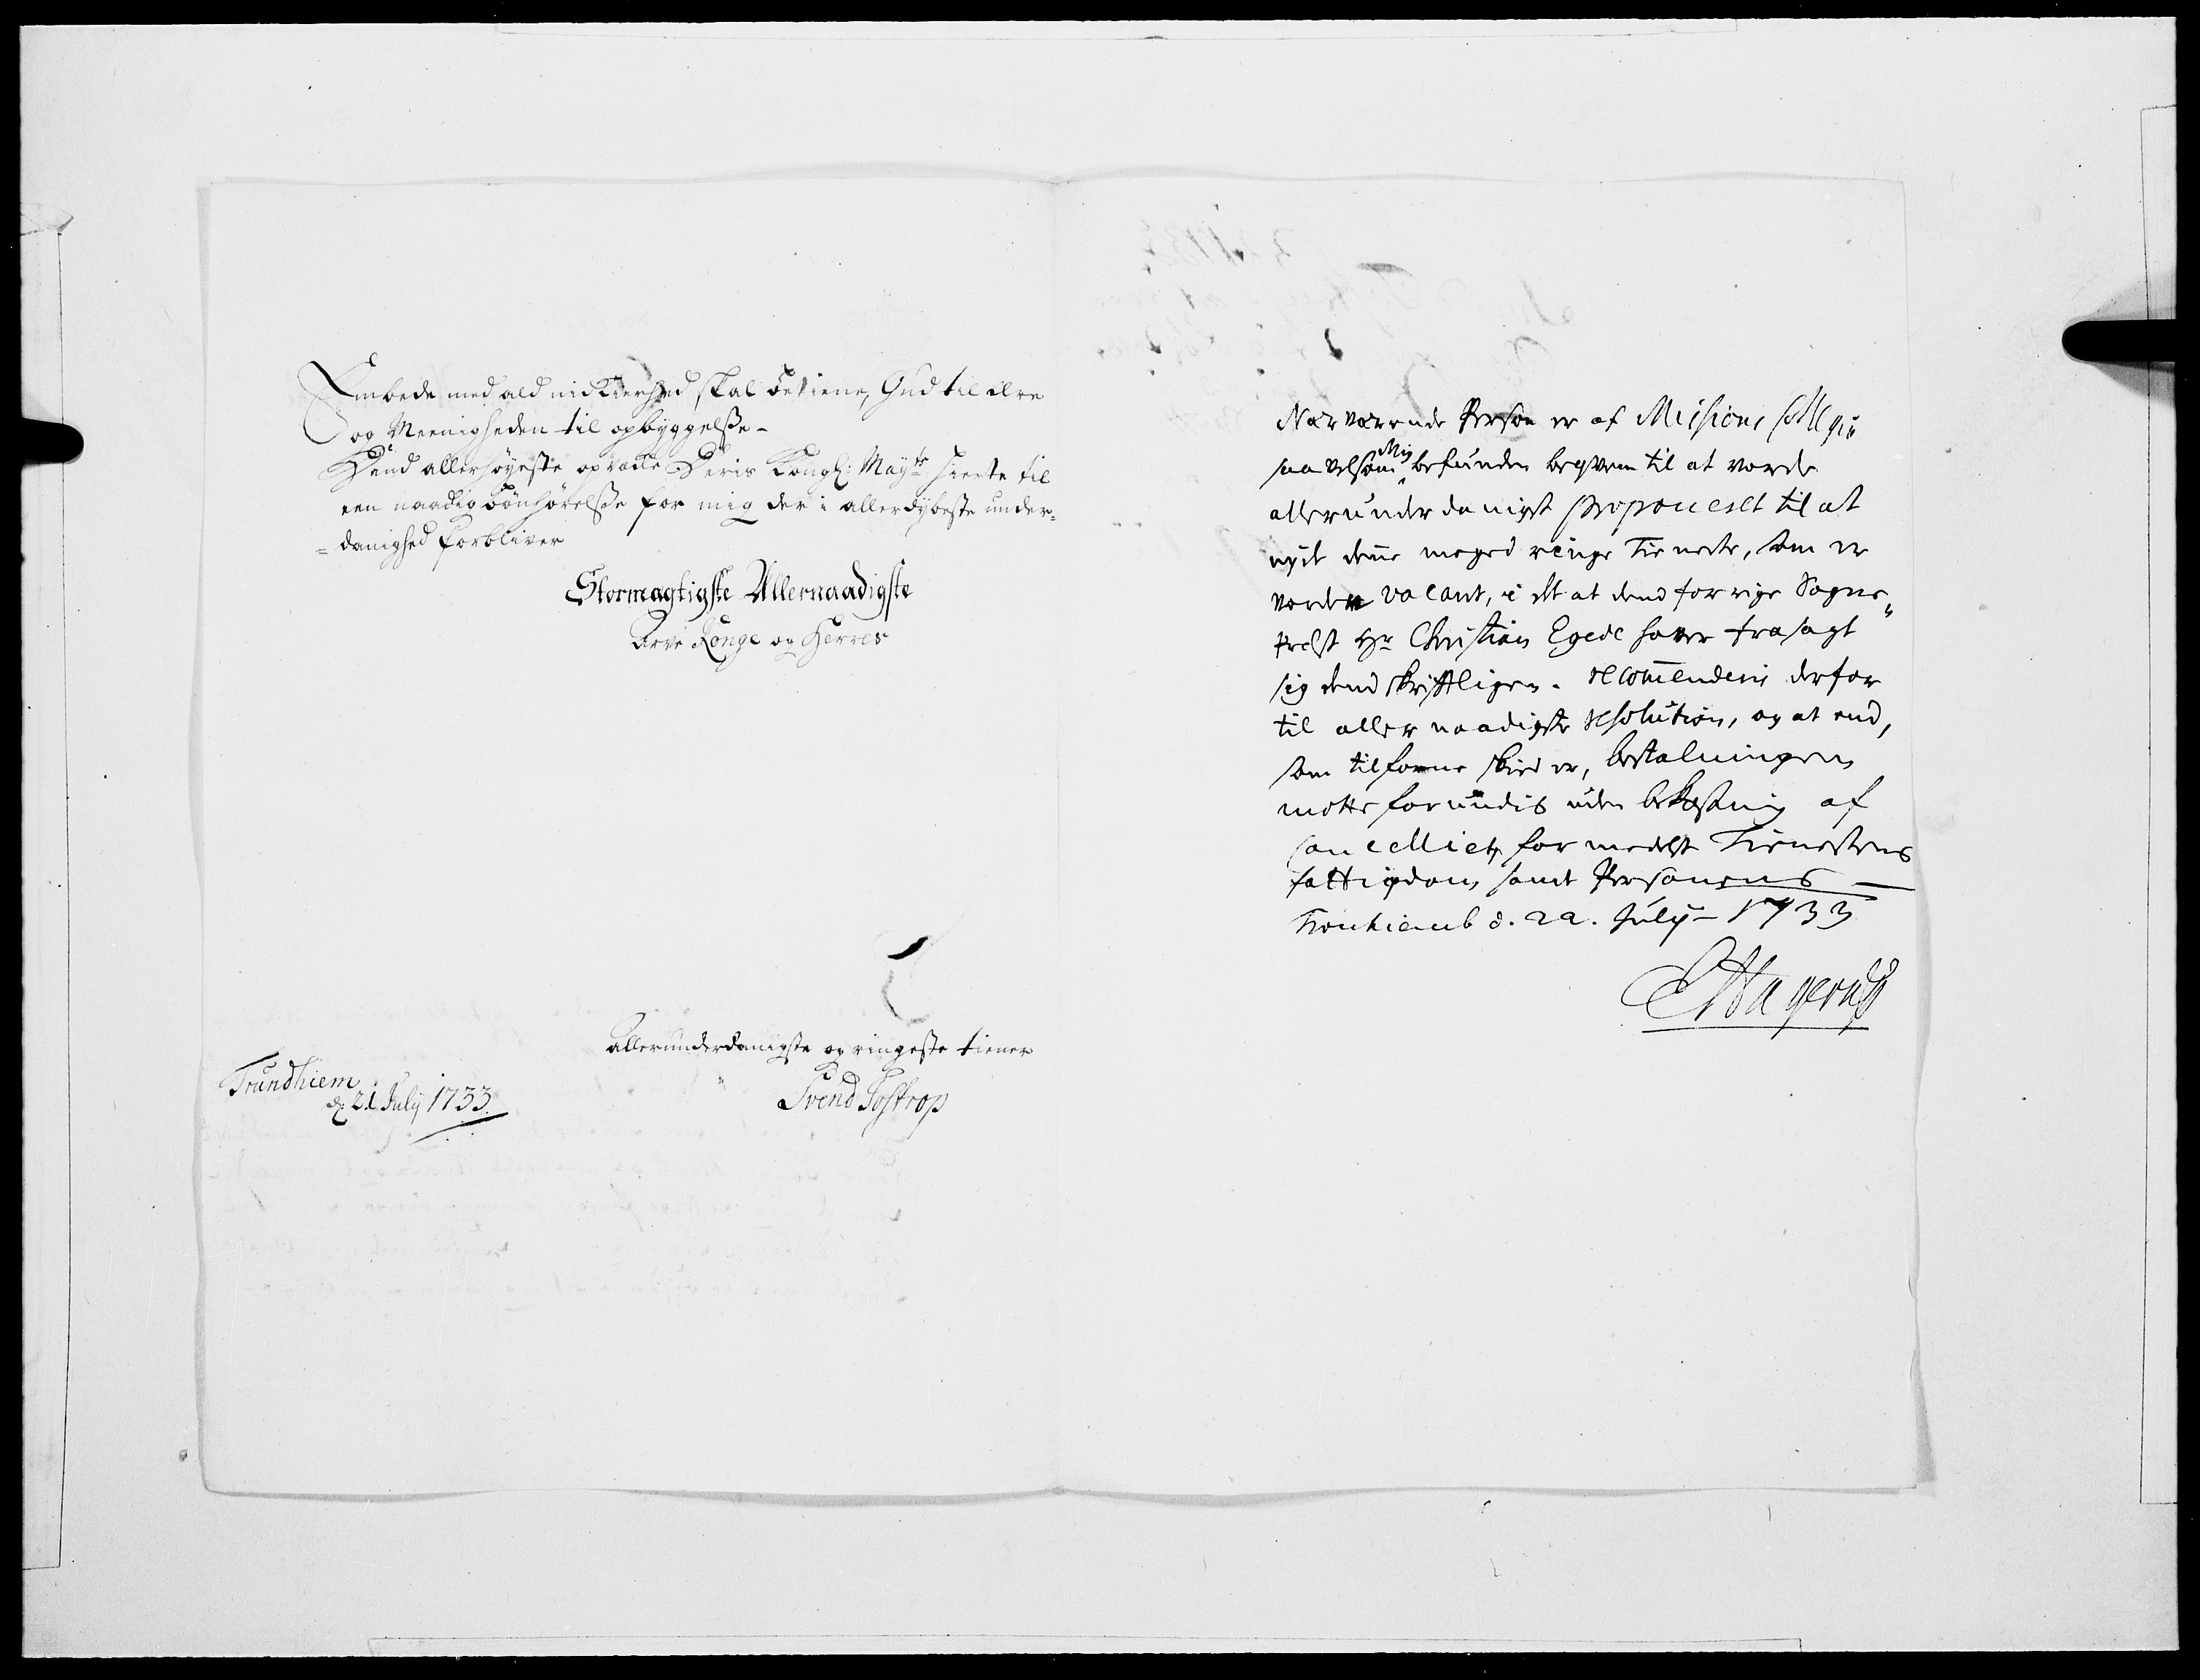 Embede med ald nidkierhed skal betiene, Gud til ære
og Meenigheden til opbyggelsse –
Dend allerhøyeste opvæcke Deris Kongl: Mayts hierte til
een naadig bønhørelsse for mig der i allerdybeste under-
= danighed forbliver
Stormægtigste Allernaadigste
Arve Konge og Herres
Allerunderdanigste og ringeste tiener
Svend Tostrop
Trundhiem
d: 21 July 1733
Nærværende Person er af Missions Collegio
saavelsom Mig befunden beqvem til at vorde
allerunderdanigst proponeret til at
nyde denne meged ringe Tieneste, som er
vorden vacant, i det at dend forrige Sogne„
Præst Hr Christian Egede haver frasagt
sig dend skriftligen. recommenderis derfor
til allernaadigste resolution, og at end,
som tilforne skeed er, bestalningen
motte forundis uden bekostning af
Cancelliet, formedelst Tienestens
fattigdom samt Personens —
Tronhiemb d. 22. July – 1733
EHagerup